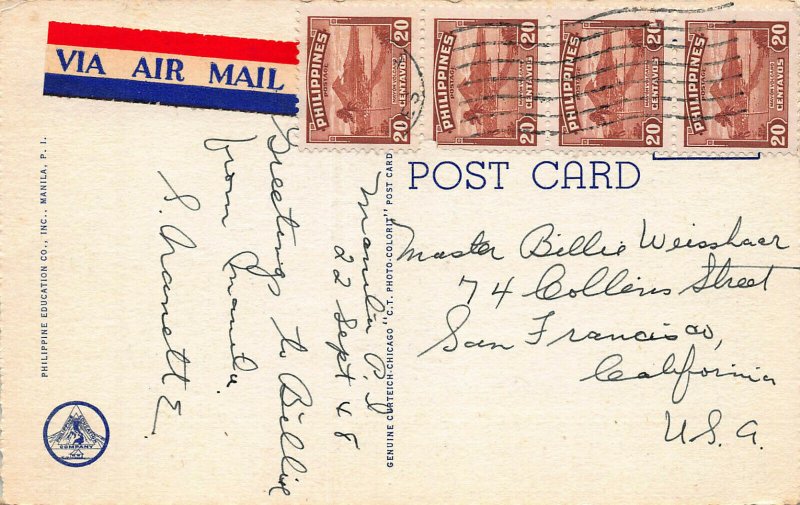 VIA AIR MAIL
PHILIPPINES
POSTAGE
20
CENTAVOS
20
PHILIPPINES
POSTAGE
20
CENTAVOS
20
PHILIPPINES
POSTAGE
20
CENTAVOS
20
PHILIPPINES
POSTAGE
20
CENTAVOS
20
POST CARD
Manila P.I
22 Sept 48
Greetings to Billie
from Manila.
Master Billie Weisshaar
74 Collins Street
San Francisco,
California
U.S.A.
GENUINE CURTEICH-CHICAGO "C.T. PHOTO-COLORIT" POST CARD
PHILIPPINE EDUCATION CO., INC., MANILA, P. I.
COMPANY